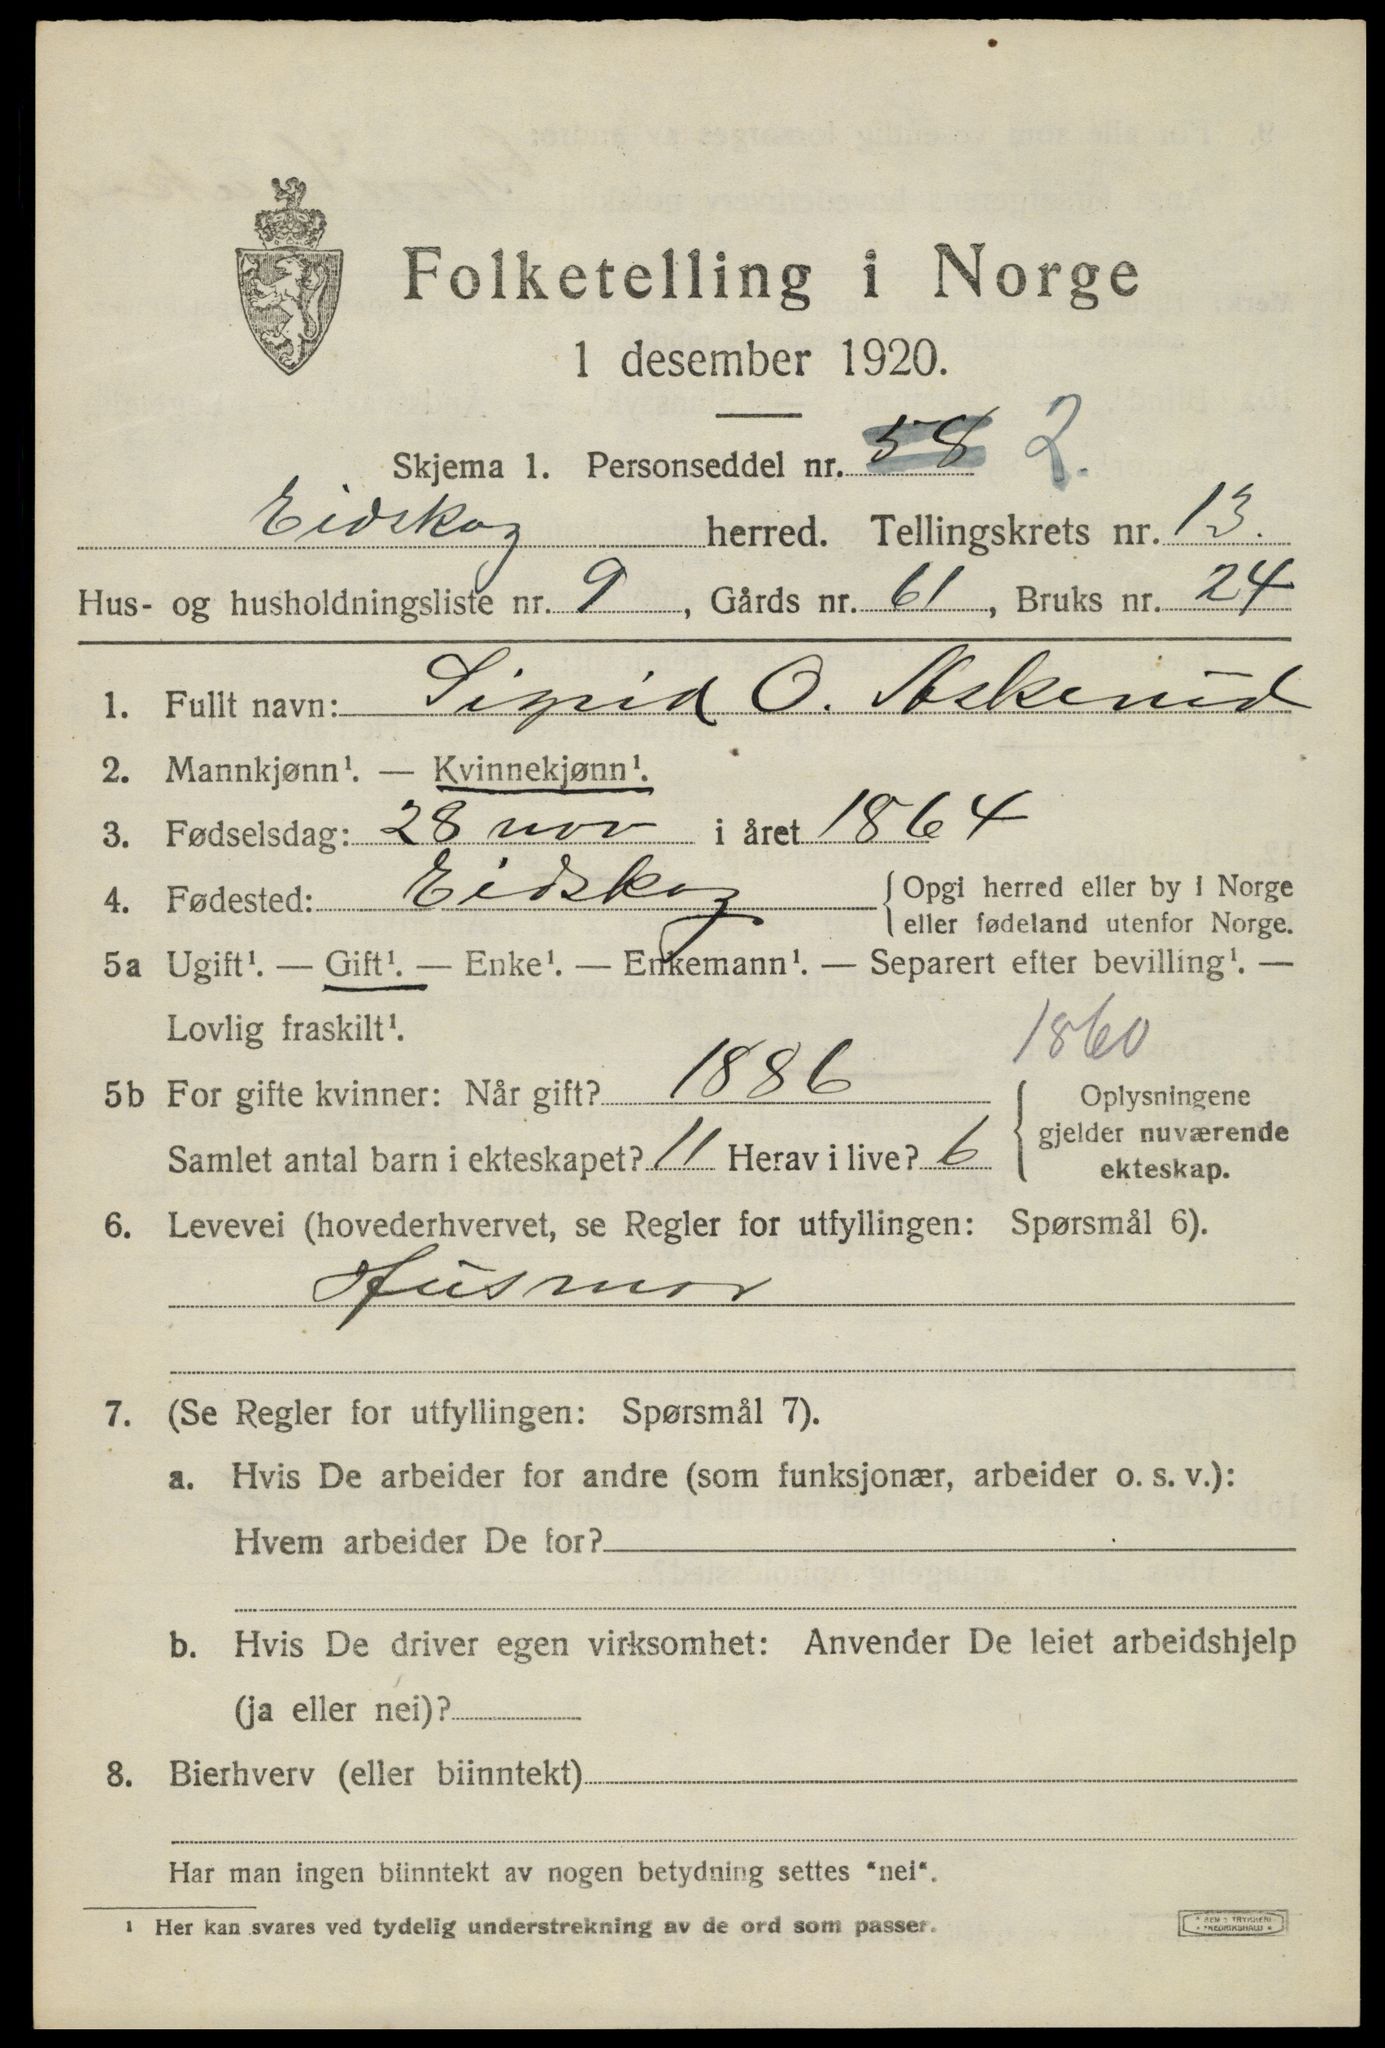 Folketelling i Norge
1 desember 1920.
Skjema 1. Personseddel nr. 58 2.
Eidskog herred. Tellingskrets nr. 13.
Hus- og husholdningsliste nr. 9, Gårds nr. 61, Bruks nr. 24
1. Fullt navn: Sigrid O. Askerud
2. Mannkjønn¹. — Kvinnekjønn¹.
3. Fødselsdag: 28 nov i året 1864
4. Fødested: Eidskog { Opgi herred eller by i Norge
eller fødeland utenfor Norge.
5a Ugift¹. — Gift¹. — Enke¹. — Enkemann¹. — Separert efter bevilling¹. —
Lovlig fraskilt¹.
1860
5b For gifte kvinner: Når gift? 1886
Samlet antal barn i ekteskapet? 11 Herav i live? 6
{ Oplysningene
gjelder nuværende
ekteskap.
6. Levevei (hovederhvervet, se Regler for utfyllingen: Spørsmål 6).
Husmor
7. (Se Regler for utfyllingen: Spørsmål 7).
a. Hvis De arbeider for andre (som funksjonær, arbeider o. s. v.):
Hvem arbeider De for?
b. Hvis De driver egen virksomhet: Anvender De leiet arbeidshjelp
(ja eller nei)?
8. Bierhverv (eller biinntekt)
Har man ingen biinntekt av nogen betydning settes "nei".
¹ Her kan svares ved tydelig understrekning av de ord som passer.